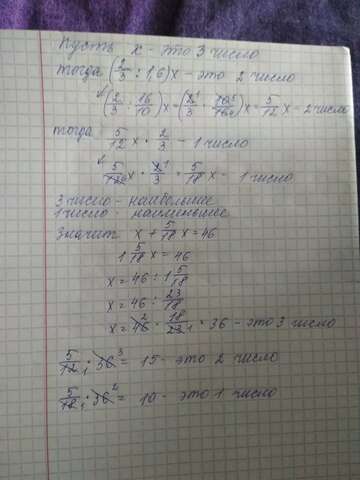 Пусть x - это 3 число
тогда (2/3 : 1,6)x - это 2 число
(2/3 : 16/10)x = (2¹/3 · 10⁵/16₈)x = 5/12 x - 2 число
тогда 5/12 x · 2/3 - 1 число
5/12₆ x · 2¹/3 = 5/18 x - 1 число
3 число - наибольшее
1 число - наименьшее
значит x + 5/18 x = 46
1 5/18 x = 46
x = 46 : 1 5/18
x = 46 : 23/18
x = 46² · 18/23₁ = 36 - это 3 число
5/12₁ · 36³ = 15 - это 2 число
5/18₁ · 36² = 10 - это 1 число